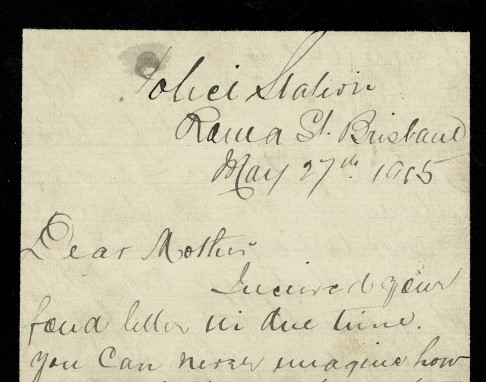 Police Station
Roma St. Brisbane
May 27th 1915
Dear Mother
I received your
fond letter in due time.
you Can never imagine how